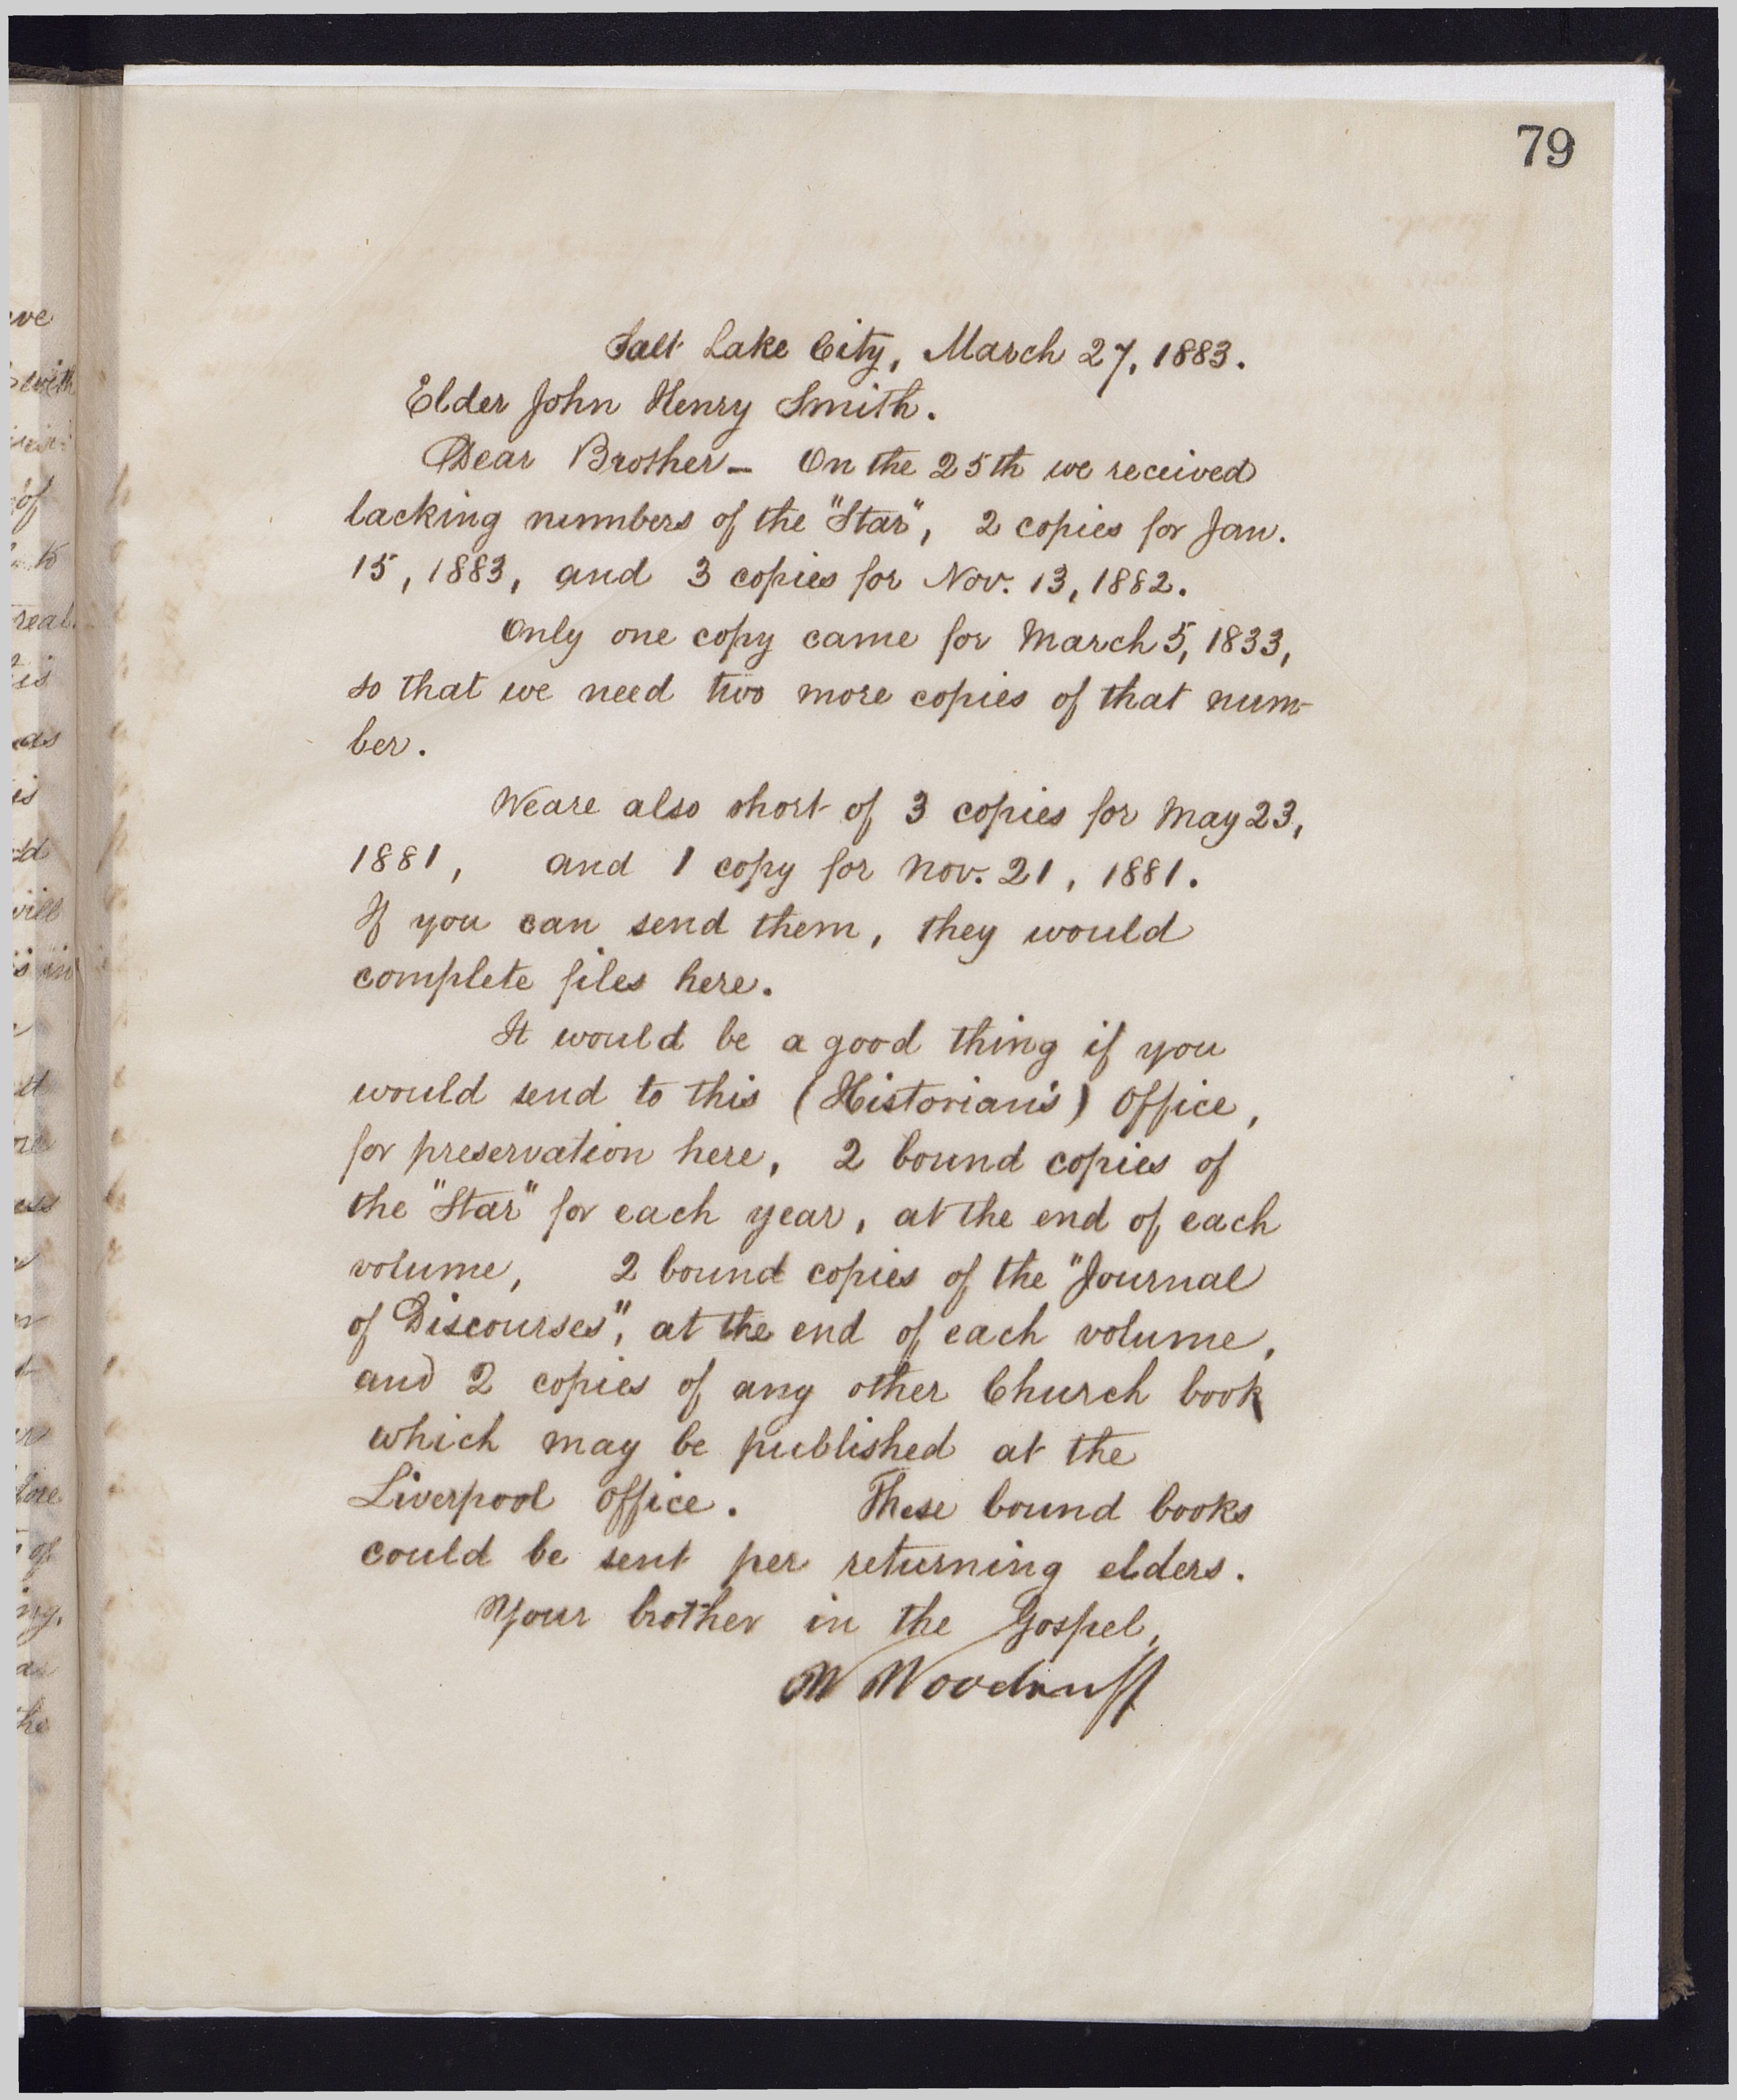 79
Salt Lake City, March 27, 1883.
Elder John Henry Smith.
Dear Brother— On the 25th we received
lacking numbers of the "Star", 2 copies for Jan.
15, 1883, and 3 copies for Nov. 13, 1882.
Only one copy came for March 5, 1833,
so that we need two more copies of that num-
ber.
We are also short of 3 copies for May 23,
1881, and 1 copy for Nov. 21, 1881.
If you can send them, they would
complete files here.
It would be a good thing if you
would send to this (Historian's) Office,
for preservation here, 2 bound copies of
the "Star" for each year, at the end of each
volume, 2 bound copies of the "Journal
of Discourses", at the end of each volume,
and 2 copies of any other Church book
which may be published at the
Liverpool Office. These bound books
could be sent per returning elders.
Your brother in the Gospel,
W Woodruff